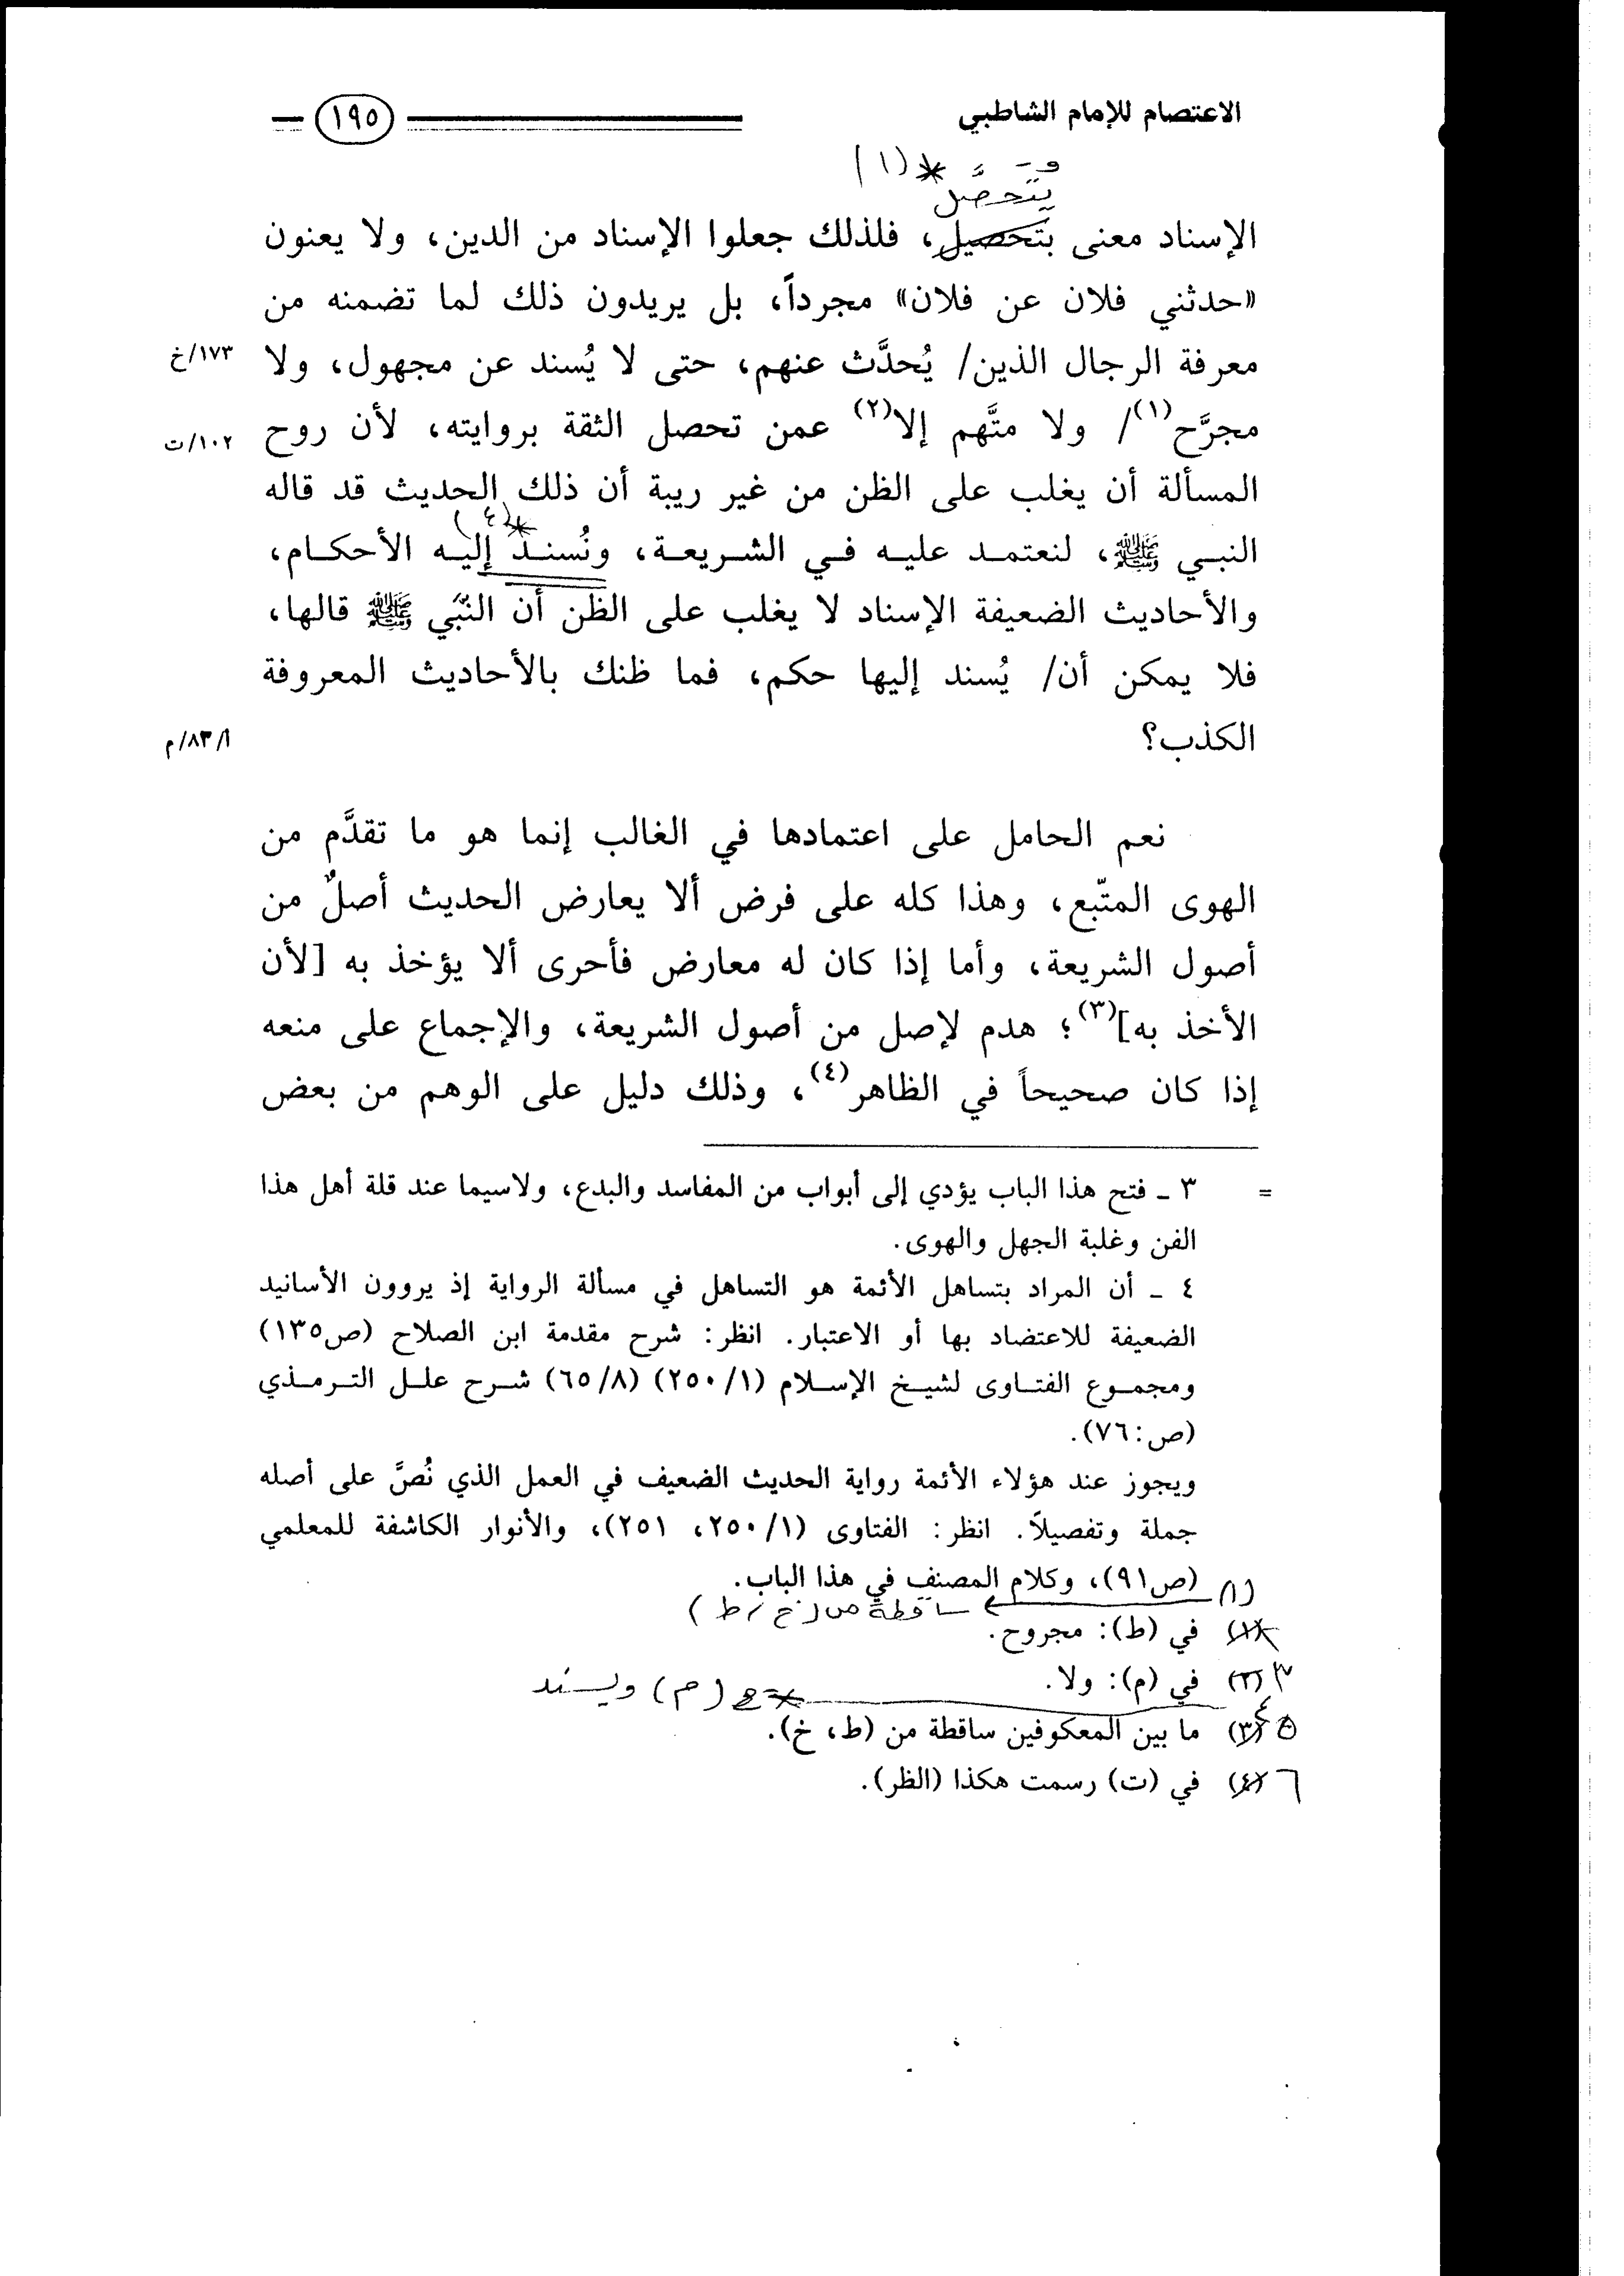 الاعتصام للإمام الشاطبي
١٩٥
يتحصَّل * (١)
الإسناد معنى بتحصيل، فلذلك جعلوا الإسناد من الدين، ولا يعنون
«حدثني فلان عن فلان» مجرداً، بل يريدون ذلك لما تضمنه من
معرفة الرجال الذين/ يُحدَّث عنهم، حتى لا يُسند عن مجهول، ولا
١٧٣/خ
مجرَّح(١)/ ولا متَّهم إلا(٢) عمن تحصل الثقة بروايته، لأن روح
١٠٢/ت
المسألة أن يغلب على الظن من غير ريبة أن ذلك الحديث قد قاله
النبي ﷺ، لنعتمد عليه في الشريعة، ونُسند *(٤) إليه الأحكام،
والأحاديث الضعيفة الإسناد لا يغلب على الظن أن النَّبي ﷺ قالها،
فلا يمكن أن/ يُسند إليها حكم، فما ظنك بالأحاديث المعروفة
الكذب؟
أ/٨٣/م
نعم الحامل على اعتمادها في الغالب إنما هو ما تقدَّم من
الهوى المتّبع، وهذا كله على فرض ألا يعارض الحديث أصلٌ من
أصول الشريعة، وأما إذا كان له معارض فأحرى ألا يؤخذ به [لأن
الأخذ به](٣)؛ هدم لإصل من أصول الشريعة، والإجماع على منعه
إذا كان صحيحاً في الظاهر(٤)، وذلك دليل على الوهم من بعض
= ٣ ـ فتح هذا الباب يؤدي إلى أبواب من المفاسد والبدع، ولاسيما عند قلة أهل هذا
الفن وغلبة الجهل والهوى.
٤ ـ أن المراد بتساهل الأئمة هو التساهل في مسألة الرواية إذ يروون الأسانيد
الضعيفة للاعتضاد بها أو الاعتبار. انظر: شرح مقدمة ابن الصلاح (ص١٣٥)
ومجموع الفتاوى لشيخ الإسلام (٢٥٠/١) (٦٥/٨) شرح علل الترمذي
(ص:٧٦).
ويجوز عند هؤلاء الأئمة رواية الحديث الضعيف في العمل الذي نُصَّ على أصله
جملة وتفصيلاً. انظر: الفتاوى (٢٥٠/١، ٢٥١)، والأنوار الكاشفة للمعلمي
(ص٩١)، وكلام المصنف في هذا الباب.
(١) ساقطة من (خ، ط)
(١) في (ط): مجروح.
٣ (٢) في (م): ولا.
٤ في (م) ويسند
٥ (٣) ما بين المعكوفين ساقطة من (ط، خ).
٦ (٤) في (ت) رسمت هكذا (الظر).